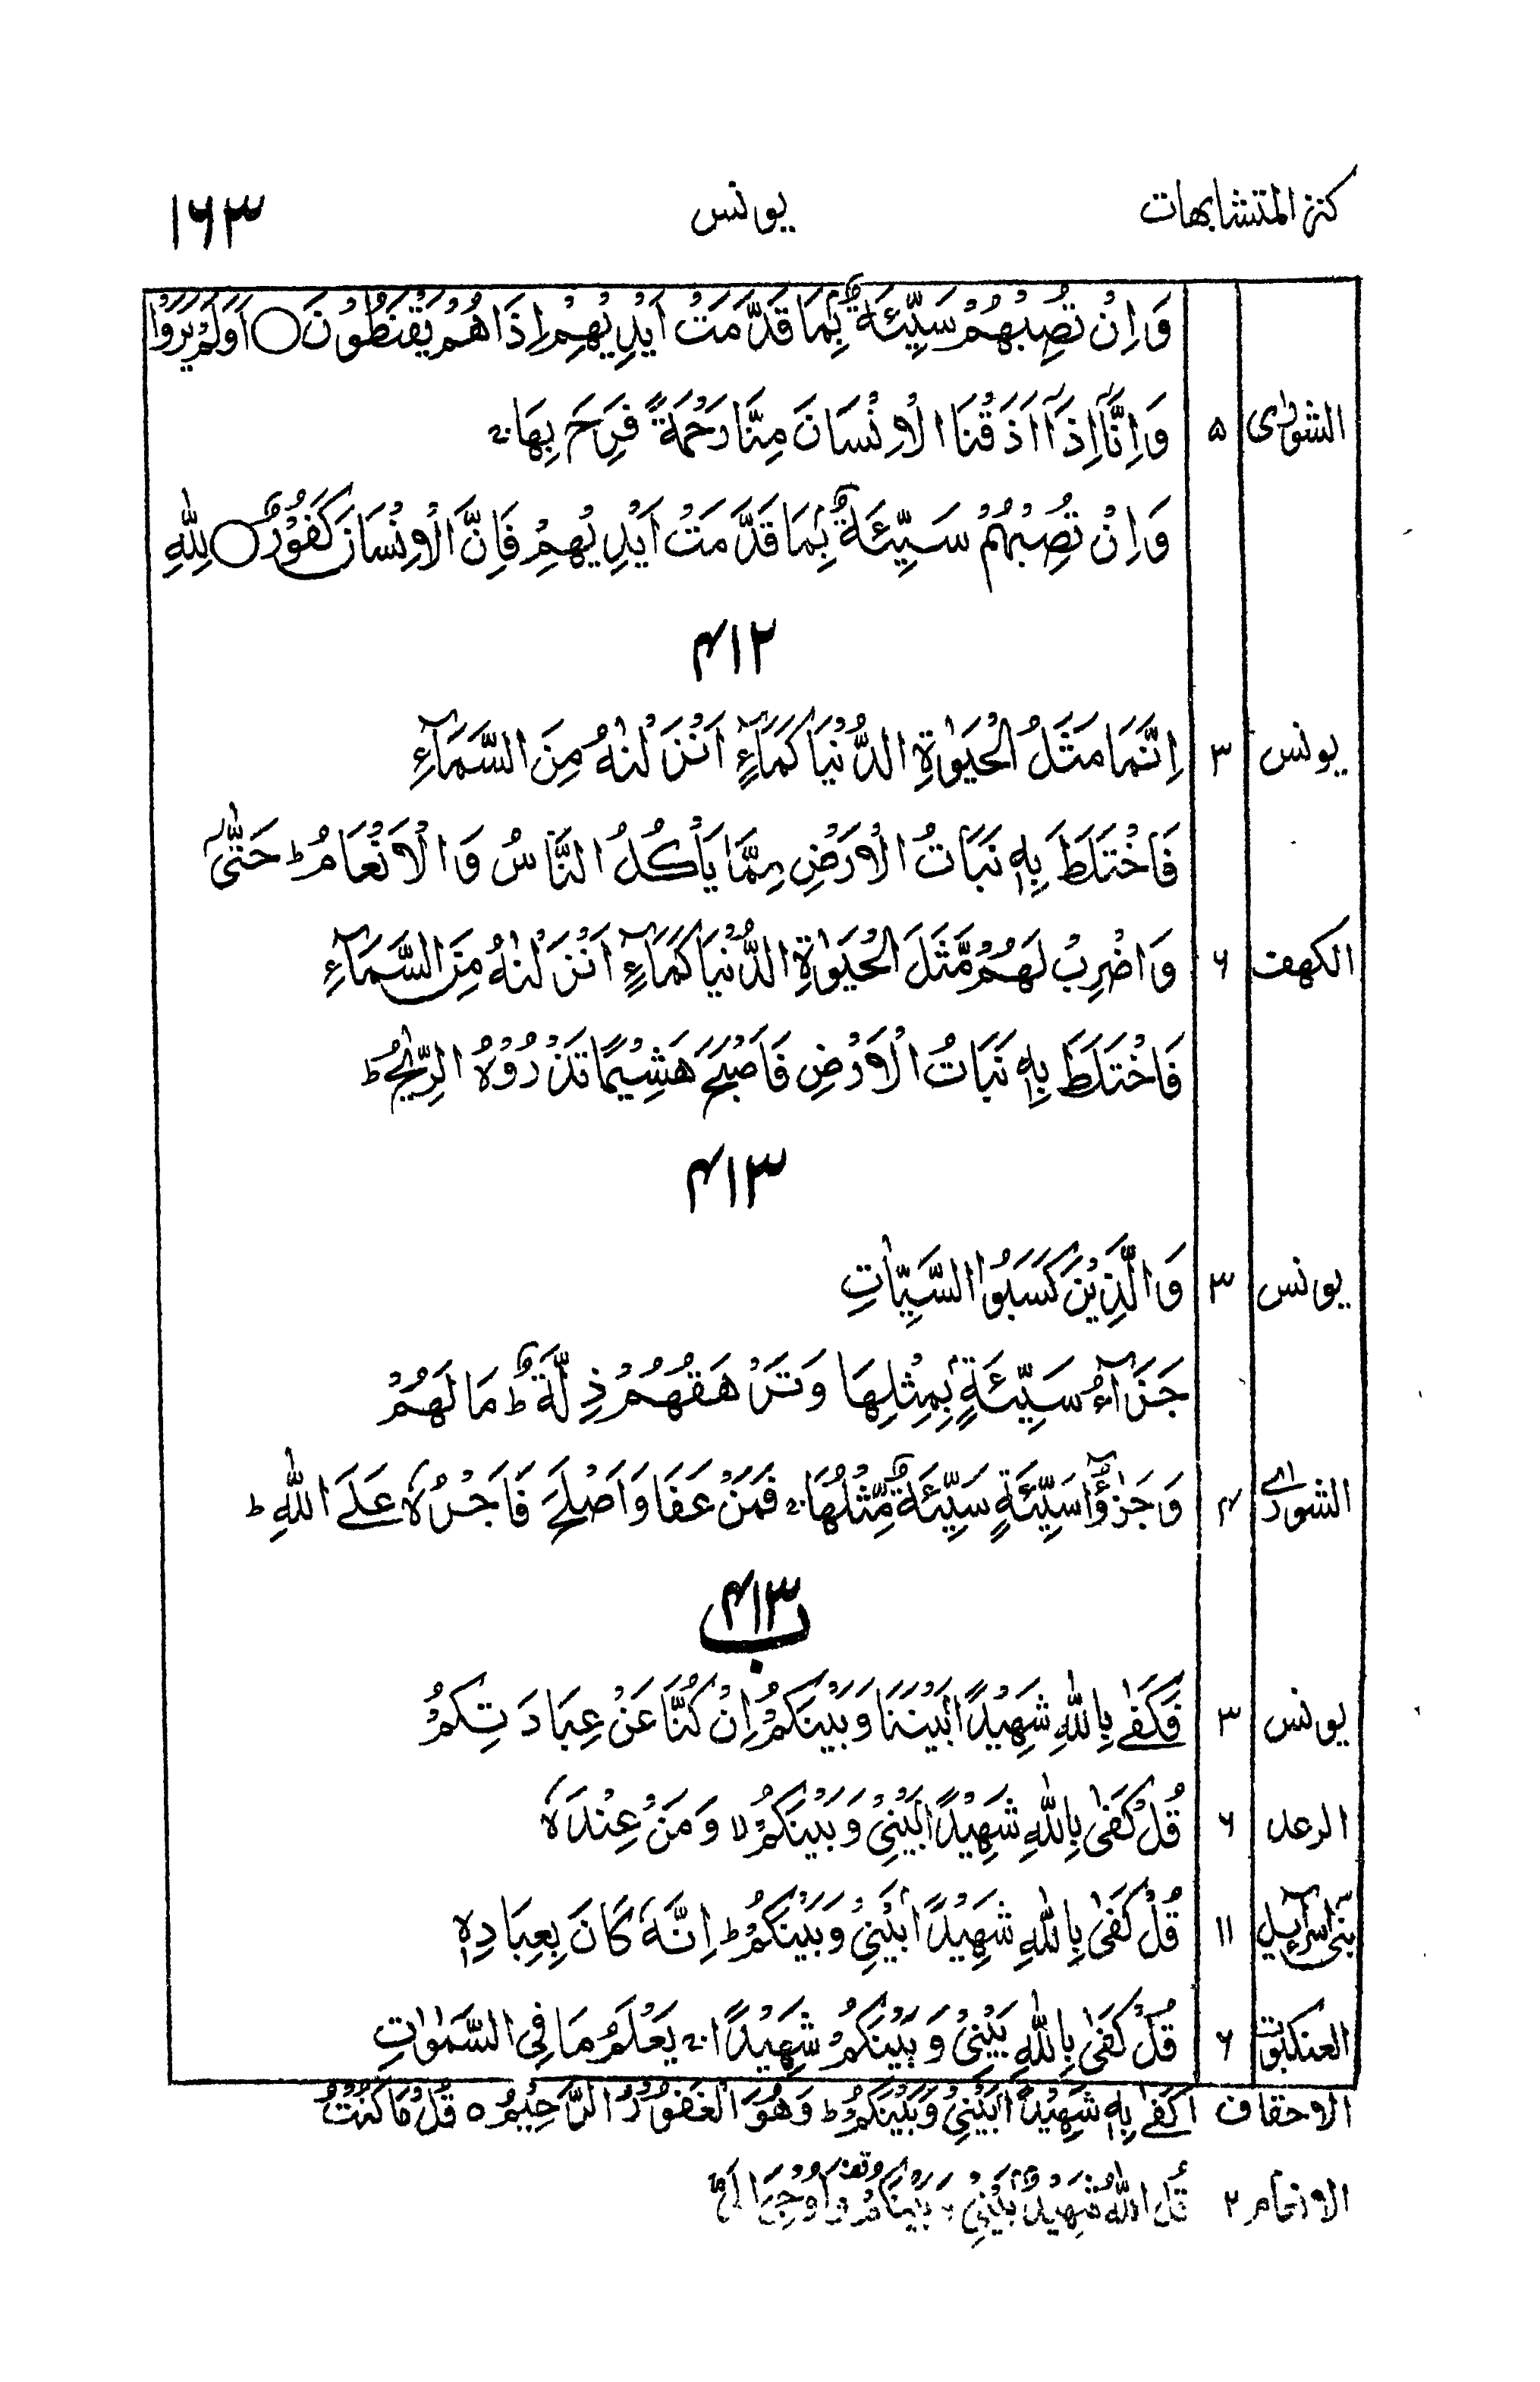 كنز المتشابهات يونس ۱۶۳
وَاِنْ تُصِبْهُمْ سَيِّئَةٌۢ بِمَا قَدَّمَتْ اَيْدِيْهِمْ اِذَا هُمْ يَقْنَطُوْنَ ○ اَوَلَمْ يَرَوْا
الشورٰى ۵ وَاِنَّاۤ اِذَاۤ اَذَقْنَا الْاِنْسَانَ مِنَّا رَحْمَةً فَرِحَ بِهَا ۚ
وَاِنْ تُصِبْهُمْ سَيِّئَةٌۢ بِمَا قَدَّمَتْ اَيْدِيْهِمْ فَاِنَّ الْاِنْسَانَ كَفُوْرٌ ○ لِلّٰهِ
۴۱۲
يونس ۳ اِنَّمَا مَثَلُ الْحَيٰوةِ الدُّنْيَا كَمَآءٍ اَنْزَلْنٰهُ مِنَ السَّمَآءِ
فَاخْتَلَطَ بِهٖ نَبَاتُ الْاَرْضِ مِمَّا يَاْكُلُ النَّاسُ وَالْاَنْعَامُ ؕ حَتّٰىۤ
الكهف ۶ وَاضْرِبْ لَهُمْ مَّثَلَ الْحَيٰوةِ الدُّنْيَا كَمَآءٍ اَنْزَلْنٰهُ مِنَ السَّمَآءِ
فَاخْتَلَطَ بِهٖ نَبَاتُ الْاَرْضِ فَاَصْبَحَ هَشِيْمًا تَذْرُوْهُ الرِّيٰحُ ؕ
۴۱۳
يونس ۳ وَالَّذِيْنَ كَسَبُوا السَّيِّاٰتِ
جَزَآءُ سَيِّئَةٍۭ بِمِثْلِهَا وَتَرْهَقُهُمْ ذِلَّةٌ ؕ مَا لَهُمْ
الشورٰى ۴ وَجَزٰٓؤُا سَيِّئَةٍ سَيِّئَةٌ مِّثْلُهَا ۚ فَمَنْ عَفَا وَاَصْلَحَ فَاَجْرُهٗ عَلَى اللّٰهِ ؕ
۴۱۳ ب
يونس ۳ فَكَفٰى بِاللّٰهِ شَهِيْدًۢا بَيْنَنَا وَبَيْنَكُمْ اِنْ كُنَّا عَنْ عِبَادَتِكُمْ
الرعد ۶ قُلْ كَفٰى بِاللّٰهِ شَهِيْدًۢا بَيْنِيْ وَبَيْنَكُمْ ۙ وَمَنْ عِنْدَهٗ
بنىۤ اسرآءيل ۱۱ قُلْ كَفٰى بِاللّٰهِ شَهِيْدًۢا بَيْنِيْ وَبَيْنَكُمْ ؕ اِنَّهٗ كَانَ بِعِبَادِهٖ
العنكبوت ۶ قُلْ كَفٰى بِاللّٰهِ بَيْنِيْ وَبَيْنَكُمْ شَهِيْدًا ۚ يَعْلَمُ مَا فِى السَّمٰوٰتِ
الاحقاف ۱ كَفٰى بِهٖ شَهِيْدًۢا بَيْنِيْ وَبَيْنَكُمْ ؕ وَهُوَ الْغَفُوْرُ الرَّحِيْمُ ○ قُلْ مَا كُنْتُ
الانعام ۲ قُلِ اللّٰهُ شَهِيْدٌۢ بَيْنِيْ وَبَيْنَكُمْ وَاُوْحِيَ